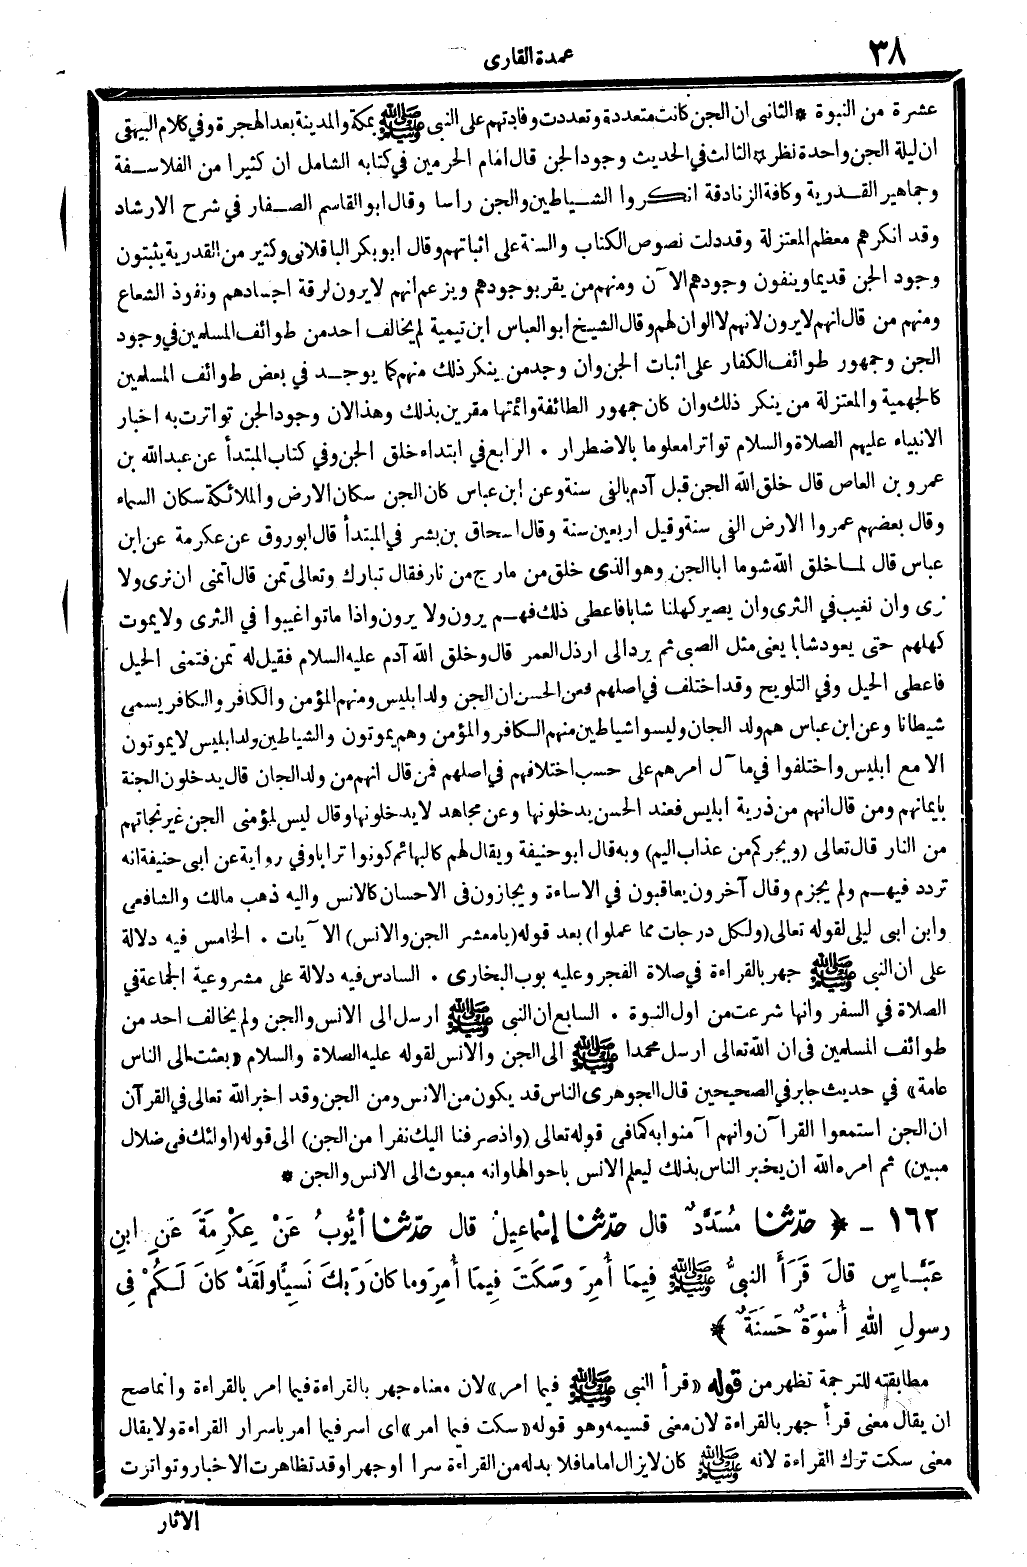 ٣٨
عمدة القارى
عشرة من النبوة * الثانى ان الجن كانت متعددة وتعددت وفادتهم على النبى ﷺ بمكة والمدينة بعد الهجرة وفي كلام البيهقى
ان ليلة الجن واحدة نظر * الثالث في الحديث وجود الجن قال امام الحرمين في كتابه الشامل ان كثيرا من الفلاسفة
وجماهير القدرية وكافة الزنادقة انكروا الشياطين والجن راسا وقال ابو القاسم الصفار في شرح الارشاد
وقد انكرهم معظم المعتزلة وقد دلت نصوص الكتاب والسنة على اثباتهم وقال ابو بكر الباقلانى وكثير من القدرية يثبتون
وجود الجن قديما وينفون وجودهم الآن ومنهم من يقر بوجودهم ويزعم انهم لا يرون لرقة اجسادهم ونفوذ الشعاع
ومنهم من قال انهم لا يرون لانهم لا الوان لهم وقال الشيخ ابو العباس ابن تيمية لم يخالف احد من طوائف المسلمين في وجود
الجن وجمهور طوائف الكفار على اثبات الجن وان وجد من ينكر ذلك منهم كما يوجد في بعض طوائف المسلمين
كالجهمية والمعتزلة من ينكر ذلك وان كان جمهور الطائفة وائمتها مقرين بذلك وهذا لان وجود الجن تواترت به اخبار
الانبياء عليهم الصلاة والسلام تواترا معلوما بالاضطرار . الرابع في ابتداء خلق الجن وفي كتاب المبتدأ عن عبد الله بن
عمرو بن العاص قال خلق الله الجن قبل آدم بالفى سنة وعن ابن عباس كان الجن سكان الارض والملائكة سكان السماء
وقال بعضهم عمروا الارض الفى سنة وقيل اربعين سنة وقال اسحاق بن بشر في المبتدأ قال ابو روق عن عكرمة عن ابن
عباس قال لما خلق الله شوما ابا الجن وهو الذى خلق من مارج من نار فقال تبارك وتعالى تمن قال اتمنى ان نرى ولا
نرى وان نغيب في الثرى وان يصير كهلنا شابا فاعطى ذلك فهم يرون ولا يرون واذا ماتوا غيبوا في الثرى ولا يموت
كهلهم حتى يعود شابا يعنى مثل الصبى ثم يرد الى ارذل العمر قال وخلق الله آدم عليه السلام فقيل له تمن فتمنى الحيل
فاعطى الحيل وفي التلويح وقد اختلف في اصلهم فعن الحسن ان الجن ولد ابليس ومنهم المؤمن والكافر والكافر يسمى
شيطانا وعن ابن عباس هم ولد الجان وليسوا شياطين منهم الكافر والمؤمن وهم يموتون والشياطين ولد ابليس لا يموتون
الا مع ابليس واختلفوا في مآل امرهم على حسب اختلافهم في اصلهم فمن قال انهم من ولد الجان قال يدخلون الجنة
بايمانهم ومن قال انهم من ذرية ابليس فعند الحسن يدخلونها وعن مجاهد لا يدخلونها وقال ليس لمؤمنى الجن غير نجاتهم
من النار قال تعالى (ويجركم من عذاب اليم) وبه قال ابو حنيفة ويقال لهم كالبهائم كونوا ترابا وفي رواية عن ابى حنيفة انه
تردد فيهم ولم يجزم وقال آخرون يعاقبون في الاساءة ويجازون في الاحسان كالانس واليه ذهب مالك والشافعى
وابن ابى ليلى لقوله تعالى (ولكل درجات مما عملوا) بعد قوله (يامعشر الجن والانس) الآيات . الخامس فيه دلالة
على ان النبى ﷺ جهر بالقراءة في صلاة الفجر وعليه بوب البخارى . السادس فيه دلالة على مشروعية الجماعة في
الصلاة في السفر وانها شرعت من اول النبوة . السابع ان النبى ﷺ ارسل الى الانس والجن ولم يخالف احد من
طوائف المسلمين في ان الله تعالى ارسل محمدا ﷺ الى الجن والانس لقوله عليه الصلاة والسلام «بعثت الى الناس
عامة» في حديث جابر في الصحيحين قال الجوهرى الناس قد يكون من الانس ومن الجن وقد اخبر الله تعالى في القرآن
ان الجن استمعوا القرآن وانهم آمنوا به كما في قوله تعالى (واذ صرفنا اليك نفرا من الجن) الى قوله (اولئك في ضلال
مبين) ثم امره الله ان يخبر الناس بذلك ليعلم الانس باحوالها وانه مبعوث الى الانس والجن *
١٦٢ - ﴿ حدّثنا مُسَدَّدٌ قال حدّثنا إسْماعِيلُ قال حدّثنا أيُّوبُ عَنْ عِكْرِمَةَ عَنِ ابنِ
عَبَّاسٍ قالَ قَرَأَ النبيُّ ﷺ فِيمَا أُمِرَ وَسَكَتَ فِيمَا أُمِرَ وما كانَ رَبكَ نَسِيًّا ولَقَدْ كانَ لَكُمْ فِى
رسولِ اللهِ أُسْوَةٌ حَسَنَةٌ ﴾
مطابقته للترجمة تظهر من قوله «قرأ النبى ﷺ فيما امر» لان معناه جهر بالقراءة فيما امر بالقراءة وانما صح
ان يقال معنى قرأ جهر بالقراءة لان معنى قسيمه وهو قوله «سكت فيما امر» اى اسر فيما امر باسرار القراءة ولا يقال
معنى سكت ترك القراءة لانه ﷺ كان لا يزال اماما فلا بد له من القراءة سرا او جهرا وقد تظاهرت الاخبار وتواترت
الآثار